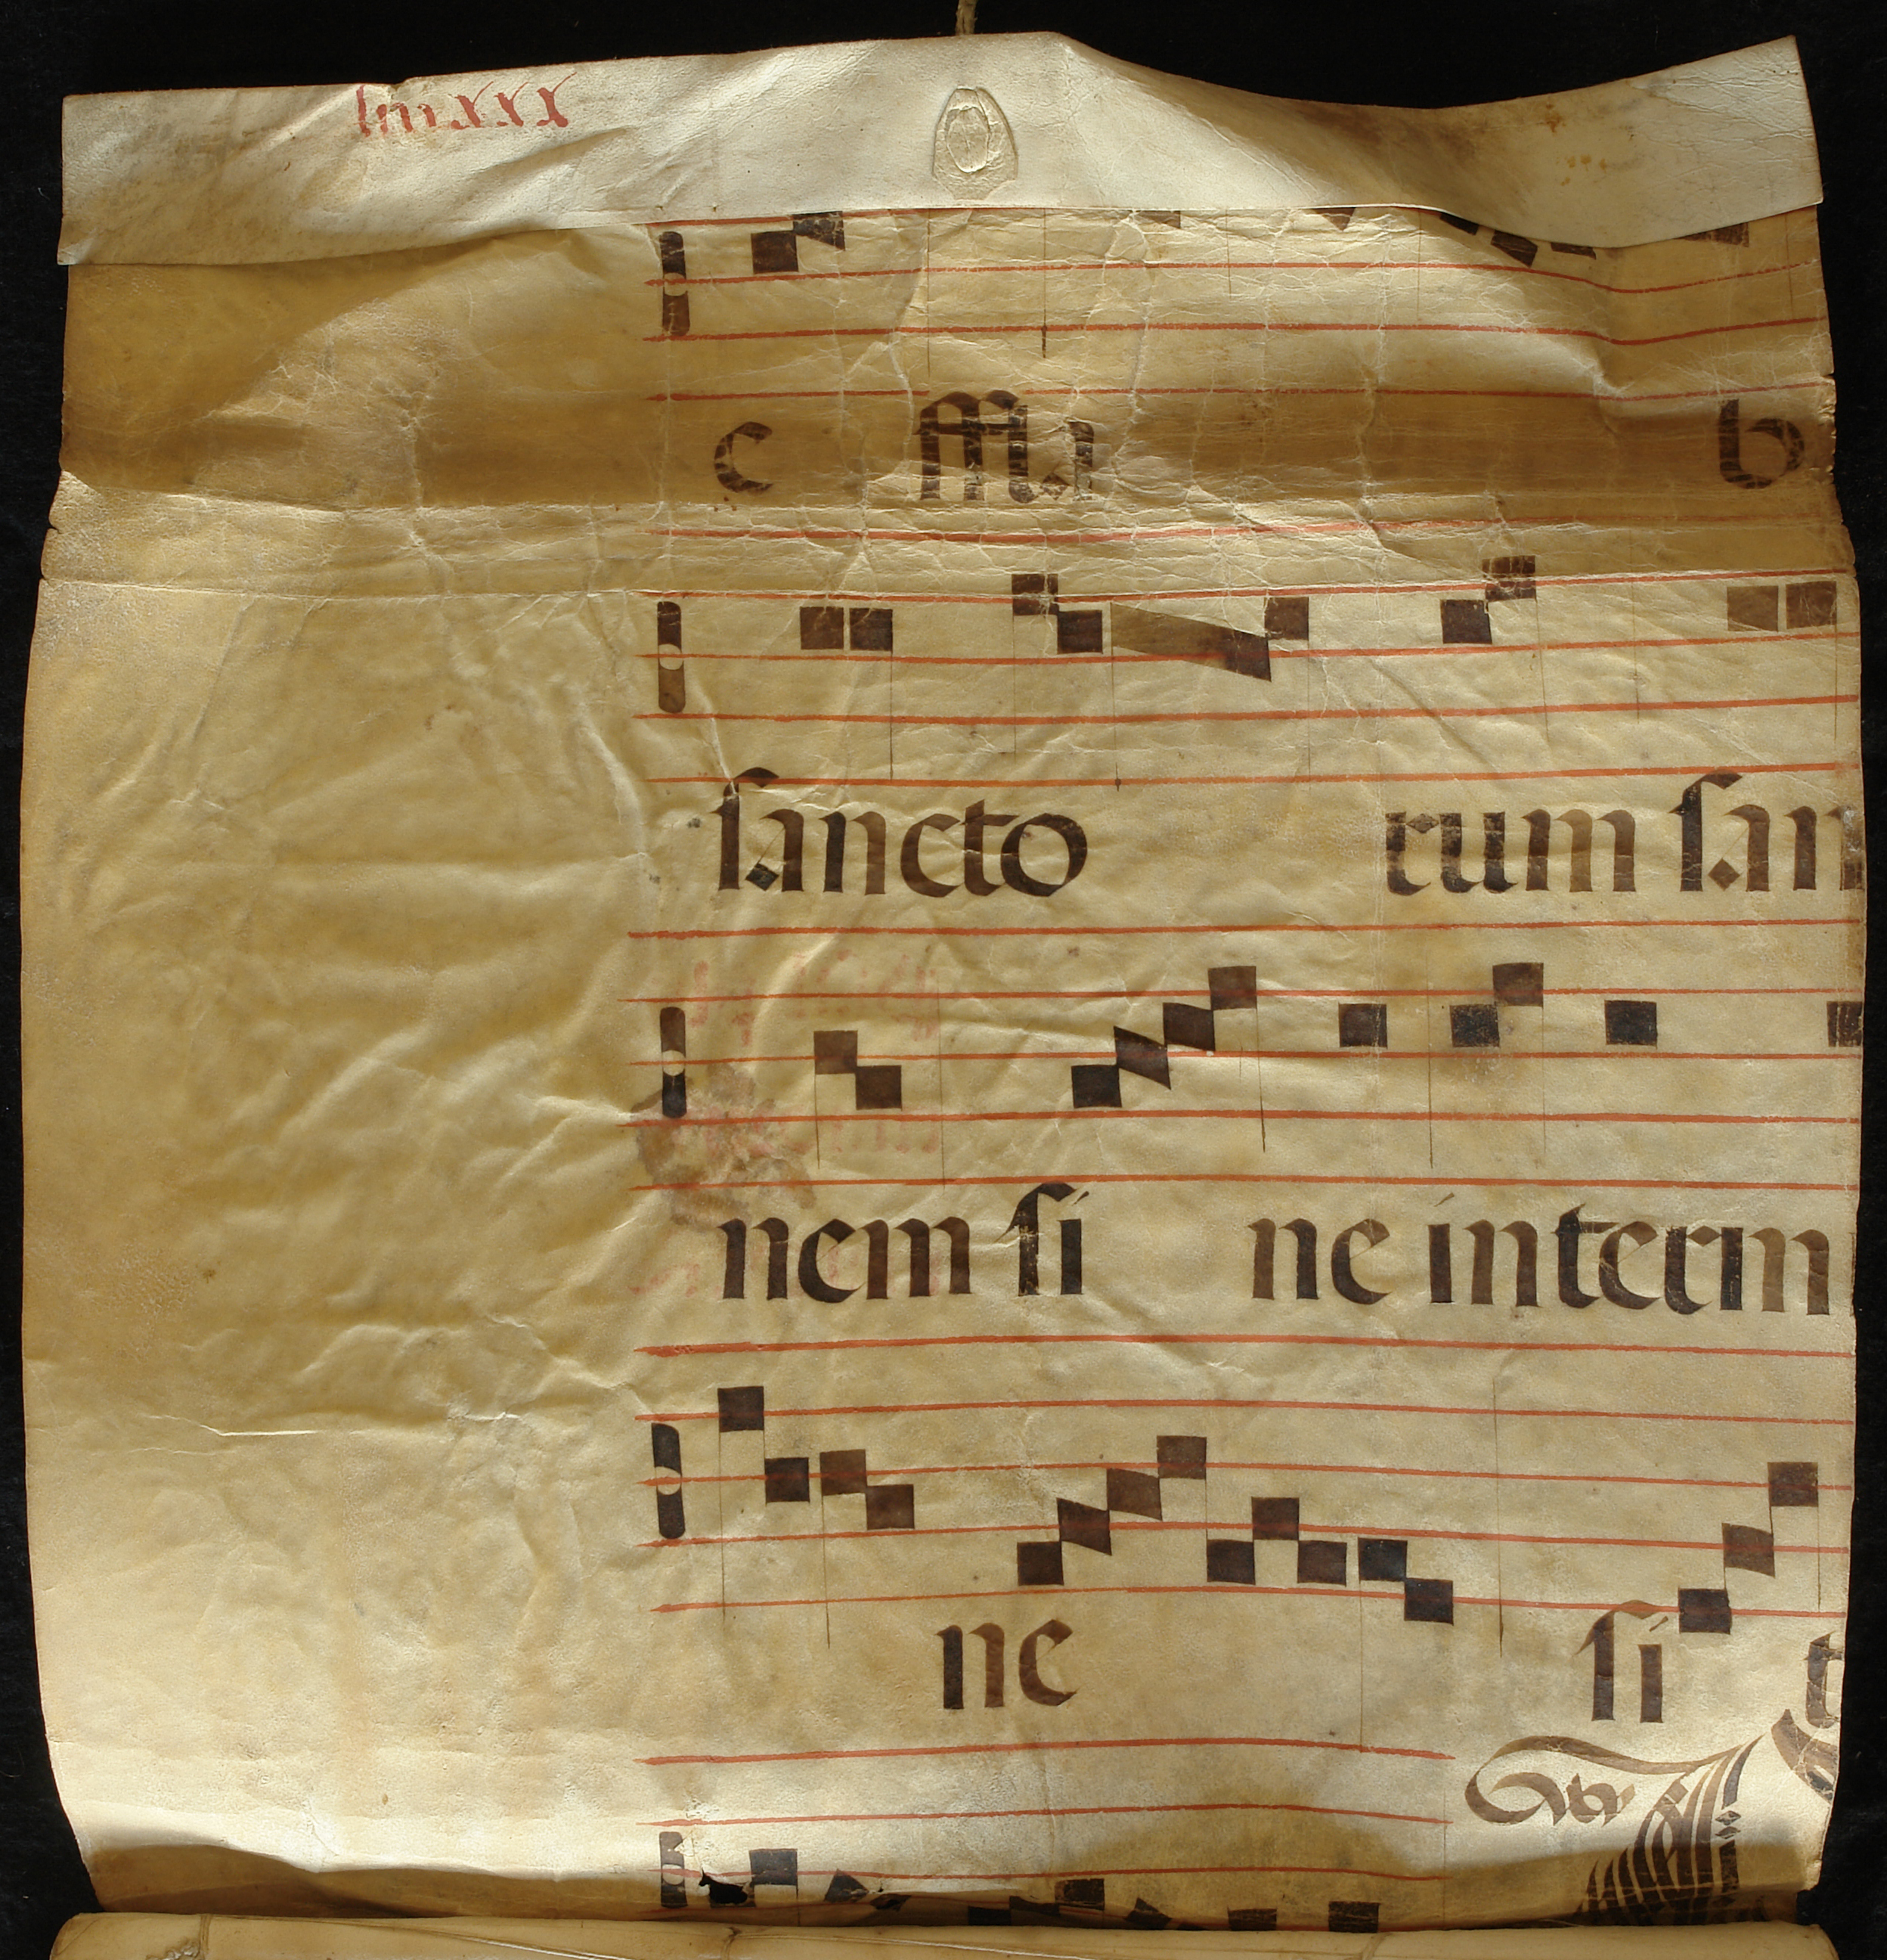 c ssi b
sancto rum san
nem si ne interm
ne si t